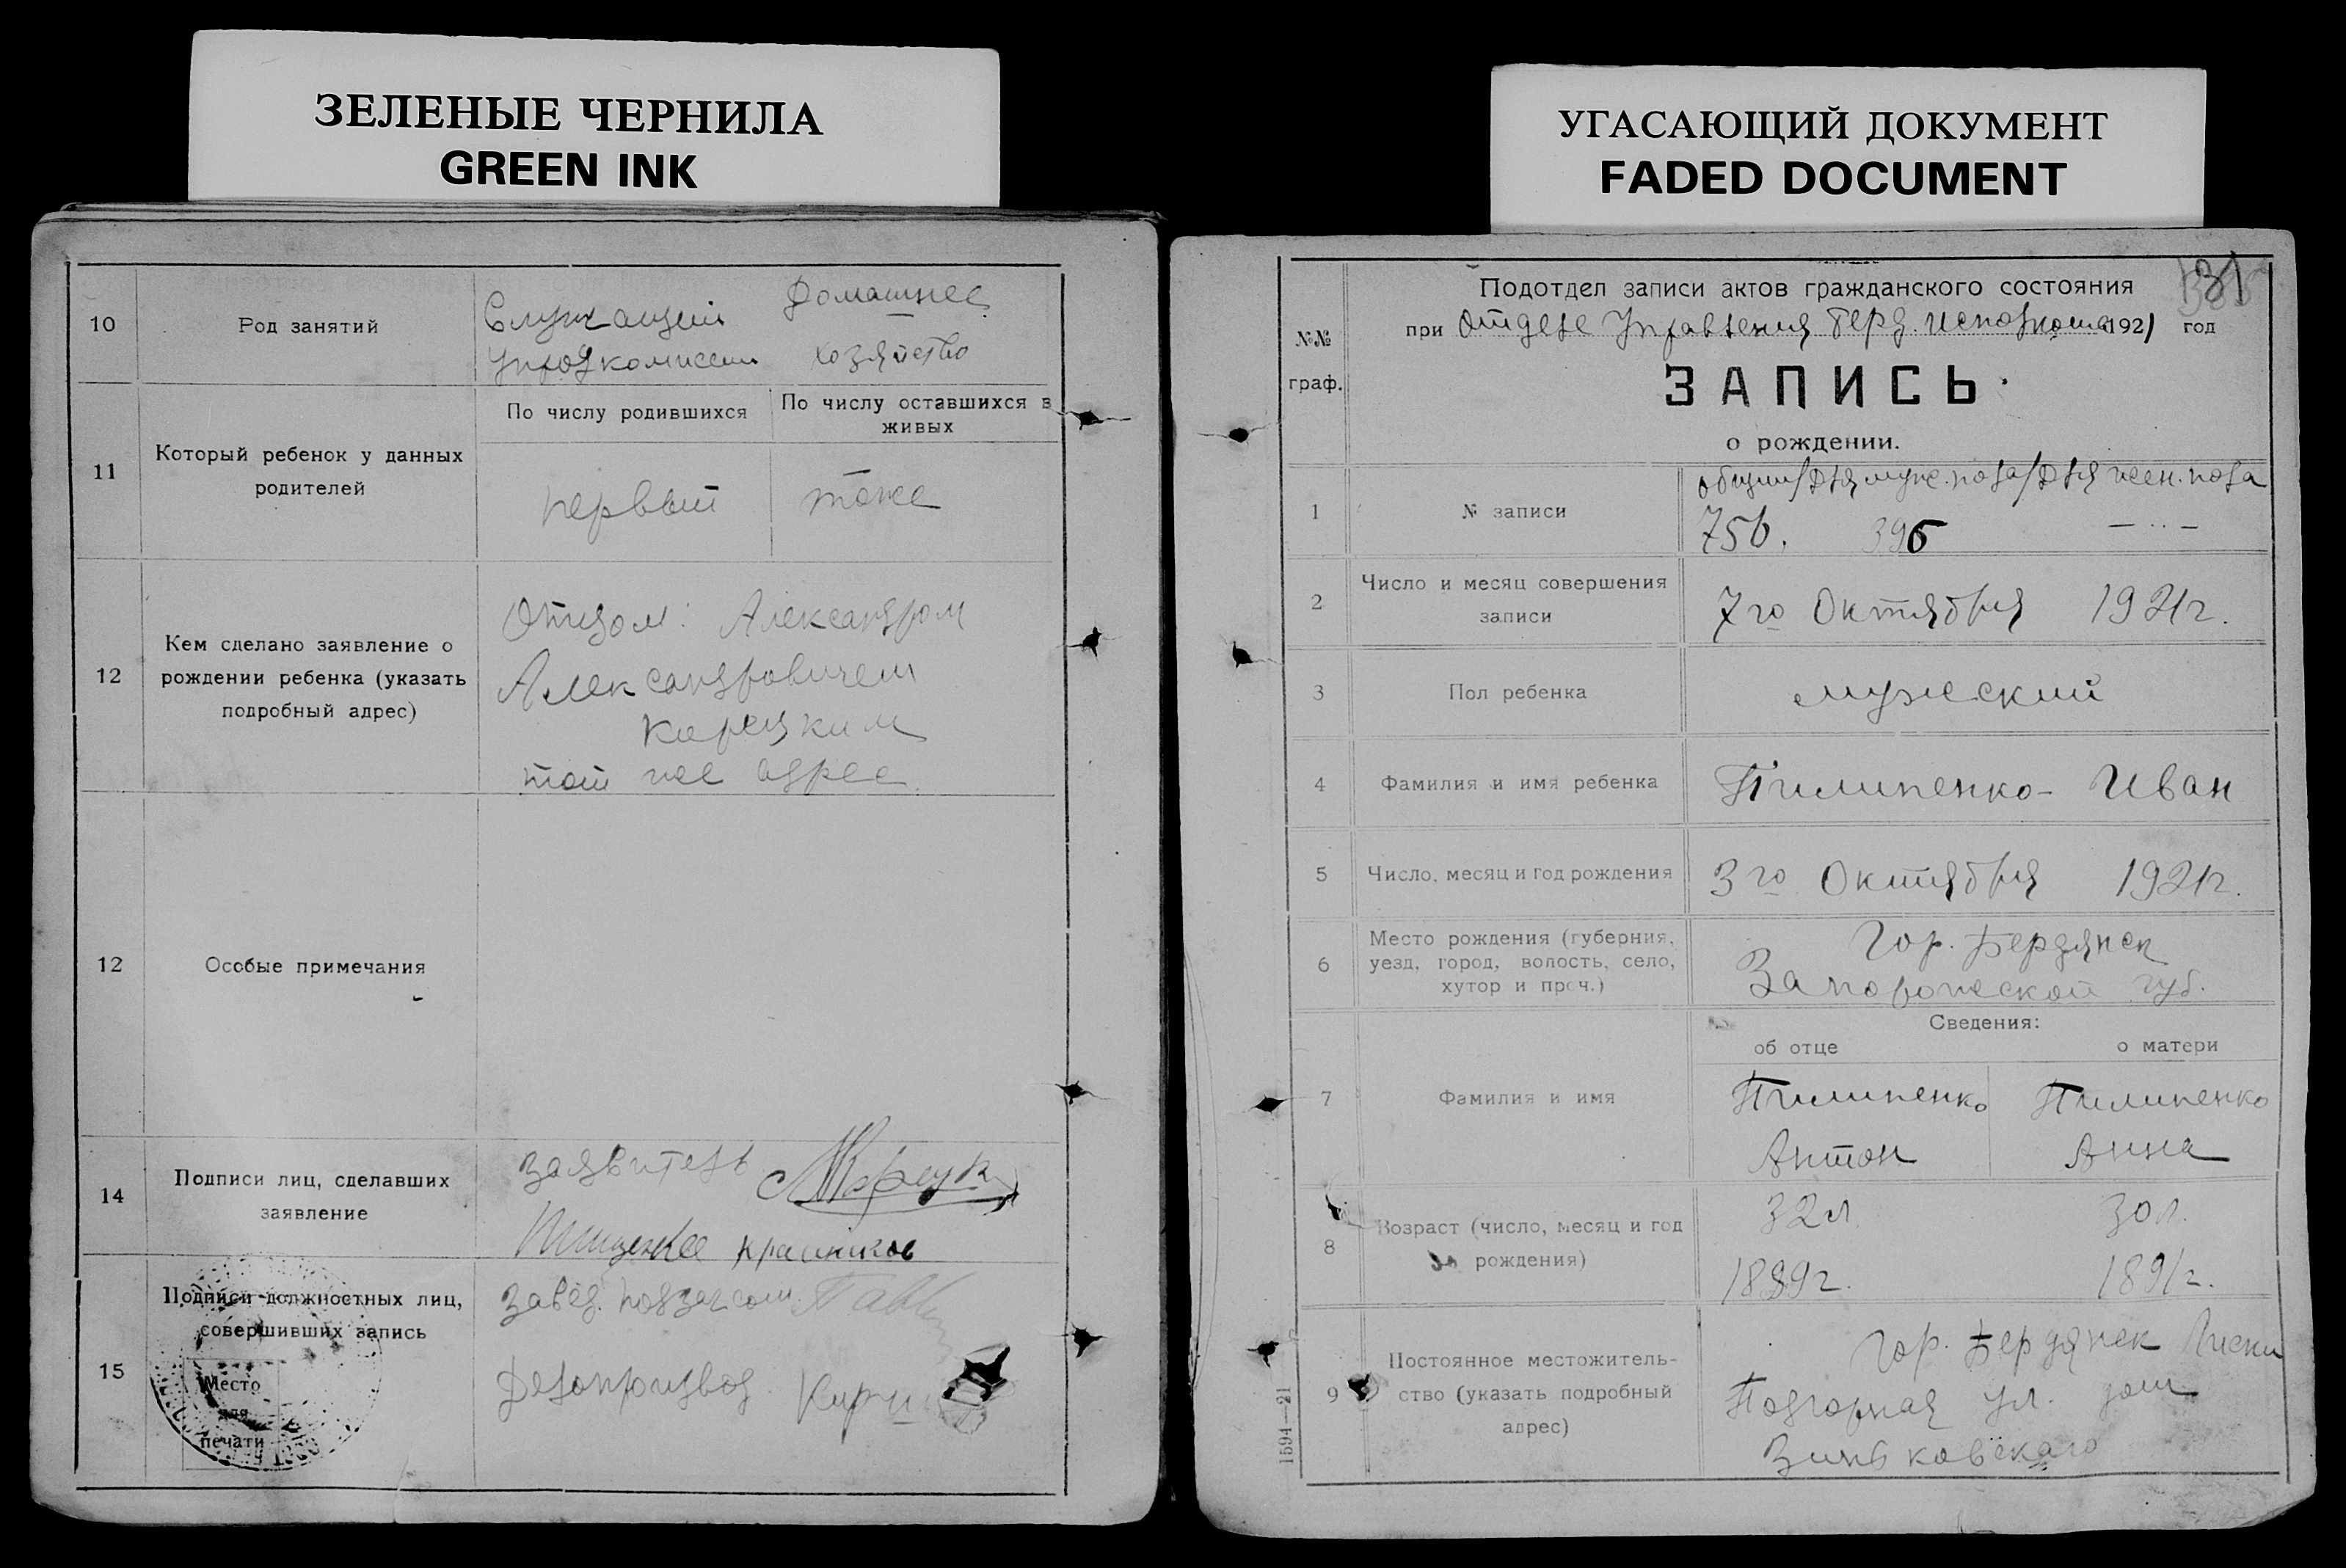 ЗЕЛЕНЫЕ ЧЕРНИЛА
GREEN INK
10
Род занятий
Служащий
Упродкомиссии
Домашнее
хозяйство
11
Который ребенок у данных
родителей
По числу родившихся
По числу оставшихся в
живых
первый
тоже
12
Кем сделано заявление о
рождении ребенка (указать
подробный адрес)
Отцом: Александром
Александровичем
Карецким
тот же адрес
12
Особые примечания
14
Подписи лиц, сделавших
заявление
Заявитель
15
Подписи должностных лиц,
совершивших запись
Место
для
печати
Завед. подзагсом
Делопроизвод.
УГАСАЮЩИЙ ДОКУМЕНТ
FADED DOCUMENT
31
№№
граф.
Подотдел записи актов гражданского состояния
при Отделе Управления Берд. Исполкома 1921 год
ЗАПИСЬ
о рождении.
1
№ записи
общий/для муж. пола/для жен. пола
756. 396 —··—
2
Число и месяц совершения
записи
7го Октября 1921г.
3
Пол ребенка
мужеский
4
Фамилия и имя ребенка
Пилипенко - Иван
5
Число, месяц и год рождения
3го Октября 1921г.
6
Место рождения (губерния,
уезд, город, волость, село,
хутор и проч.)
Гор. Бердянск
Запорожской губ.
Сведения:
об отце
о матери
7
Фамилия и имя
Пилипенко
Антон
Пилипенко
Анна
8
Возраст (число, месяц и год
рождения)
32л
1889г.
30л.
1891г.
9
Постоянное местожитель-
ство (указать подробный
адрес)
Гор. Бердянск Лиски
Подгорная ул. дом
Зиньковскаго
1594—21